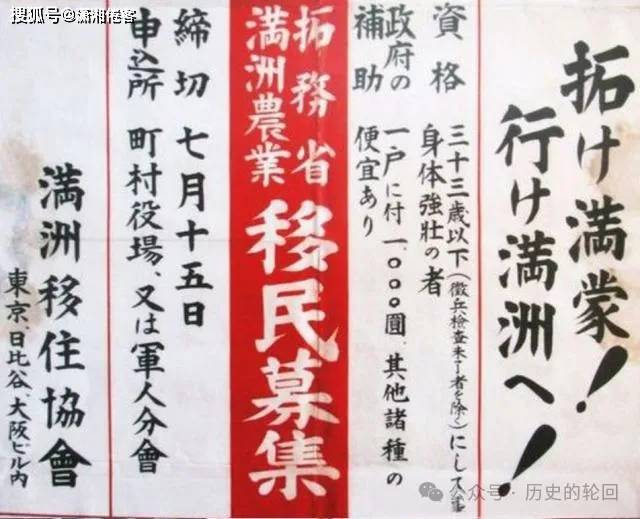 搜狐号@潇湘倦客
拓け満蒙!
行け満洲へ!
資格
三十三歳以下(徴兵検査未了者を除く)にして
身体強壮の者
政府の
補助
一戸に付一〇〇〇圓、其他諸種の
便宜あり
拓務省
満洲農業
移民募集
締切 七月十五日
申込所 町村役場、又は軍人分會
満洲移住協會
東京、日比谷、大阪ビル内
公众号·历史的轮回